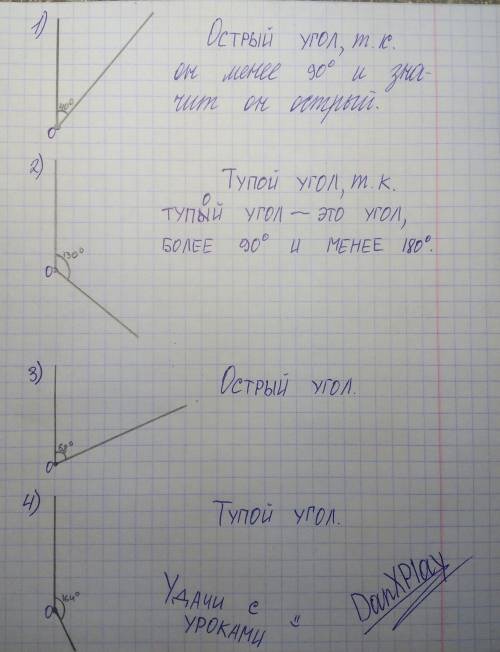 1)
40°
О
Острый угол, т.к.
он менее 90° и зна-
чит он острый.
2)
130°
О
Тупой угол, т.к.
тупой угол – это угол,
более 90° и менее 180°.
3)
О
Острый угол.
4)
164°
О
Тупой угол.
Удачи с
уроками
DanXPlay